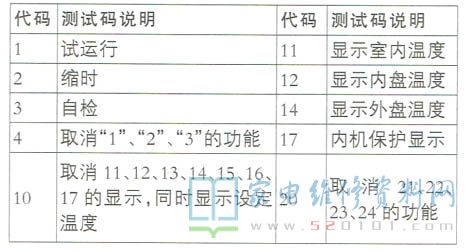 代码 测试码说明 代码 测试码说明
1 试运行 11 显示室内温度
2 缩时 12 显示内盘温度
3 自检 14 显示外盘温度
4 取消“1”、“2”、“3”的功能 17 内机保护显示
取消 11、12、13、14、15、16、
10 17 的显示,同时显示设定 20 取消 21、22、
温度 23、24 的功能
家电维修资料网
www.520101.com